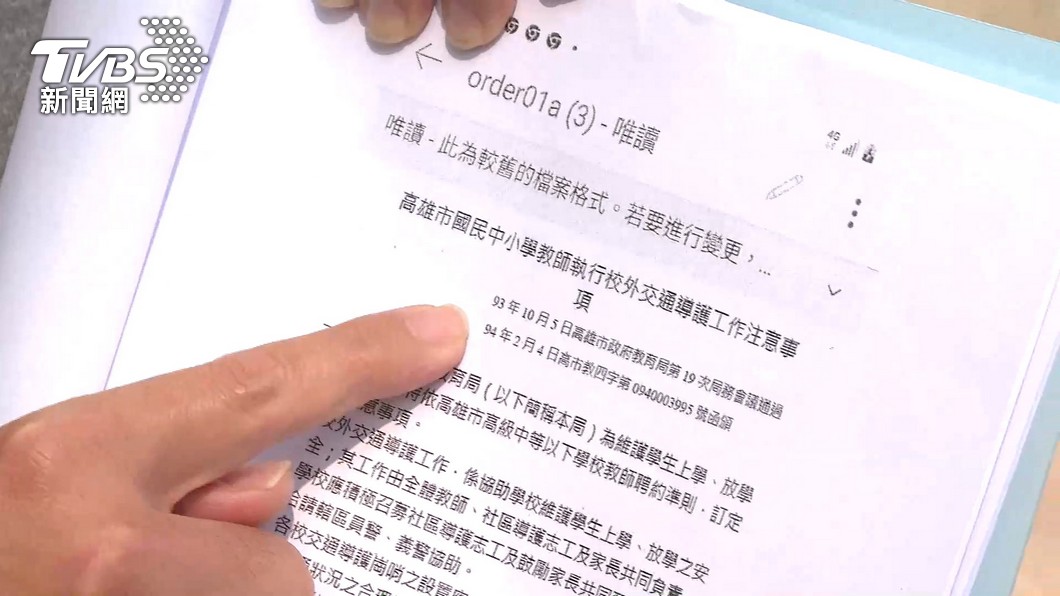 TVBS
新聞網
order01a (3) - 唯讀
4G
唯讀 - 此為較舊的檔案格式。若要進行變更，...
高雄市國民中小學教師執行校外交通導護工作注意事
項
93 年 10 月 5 日高雄市政府教育局第 19 次局務會議通過
94 年 2 月 4 日高市教四字第 0940003995 號函頒
育局（以下簡稱本局）為維護學生上學、放學
得依高雄市高級中等以下學校教師聘約準則，訂定
意事項。
校外交通導護工作，係協助學校維護學生上學、放學之安
全；其工作由全體教師、社區導護志工及家長共同負責
學校應積極召募社區導護志工及鼓勵家長共同
請轄區員警、義警協助。
各校交通導護崗哨之設置
狀況之合